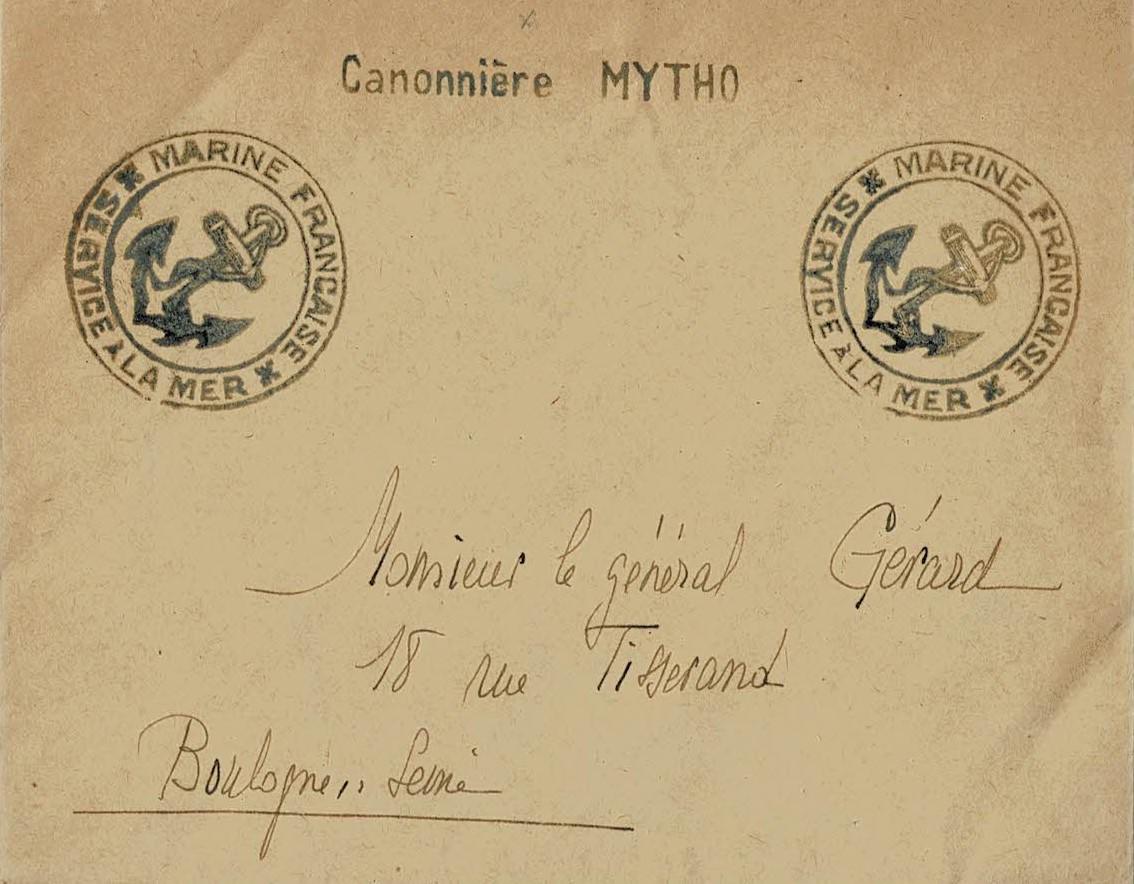 Canonnière MYTHO
MARINE FRANÇAISE
SERVICE à LA MER
MARINE FRANÇAISE
SERVICE à LA MER
Monsieur le général Gérard
18 rue Tisserand
Boulogne s. Seine